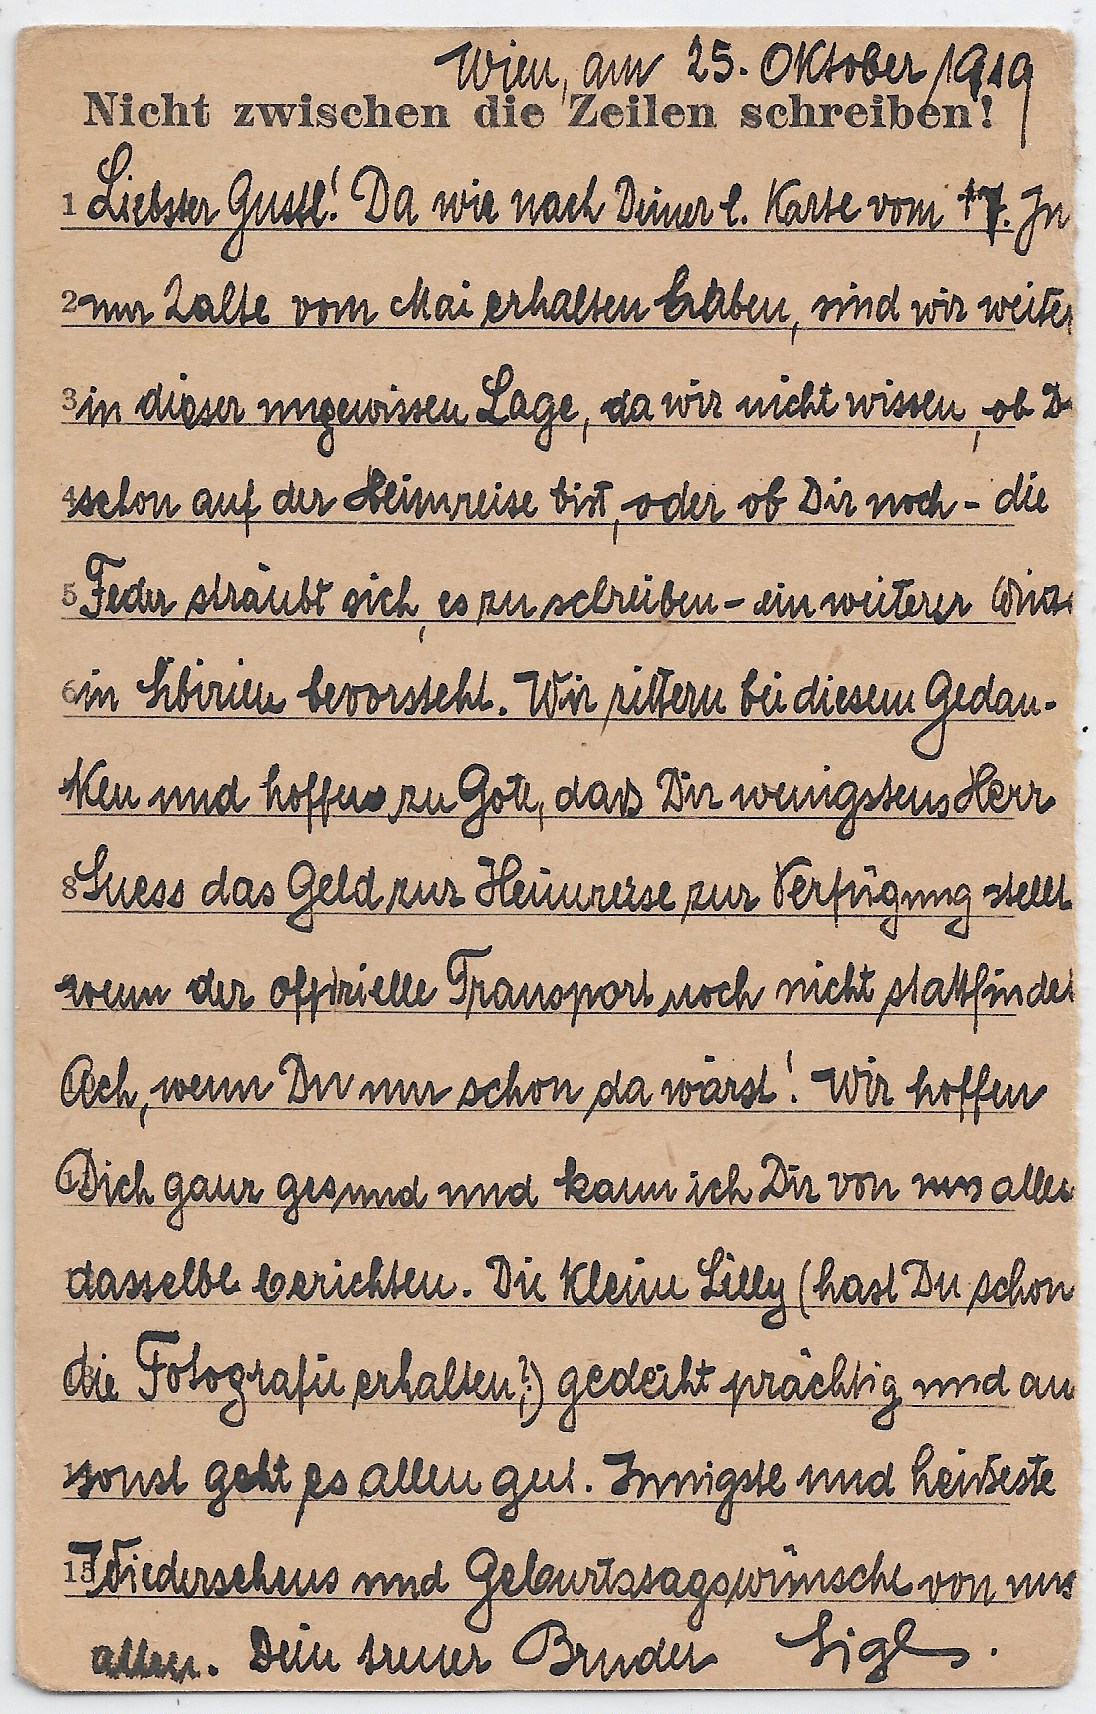 Wien, am 25. Oktober 1919
Nicht zwischen die Zeilen schreiben!
1 Liebster Gustl! Da wir nach Deiner l. Karte vom 17. Ju
2 nur 2 alte vom Mai erhalten haben, sind wir weiter
3 in dieser ungewissen Lage, da wir nicht wissen, ob D
4 schon auf der Heimreise bist, oder ob Dir noch - die
5 Feder sträubt sich, es zu schreiben - ein weiterer
6 in Sibirien bevorsteht. Wir zittern bei diesem Gedan-
ken und hoffen zu Gott, daß Dir wenigstens Herr
8 Suess das Geld zur Heimreise zur Verfügung stellt
wenn der offizielle Transport noch nicht stattfindet
Ach, wenn Du nur schon da wärst! Wir hoffen
Dich ganz gesund und kann ich Dir von uns allen
dasselbe berichten. Die kleine Lilly (hast Du schon
die Fotografie erhalten?) gedeiht prächtig und au
sonst geht es allen gut. Innigste und heißeste
15 Wiedersehens und Geburtstagswünsche von uns
allen. Dein treuer Bruder Sigl.